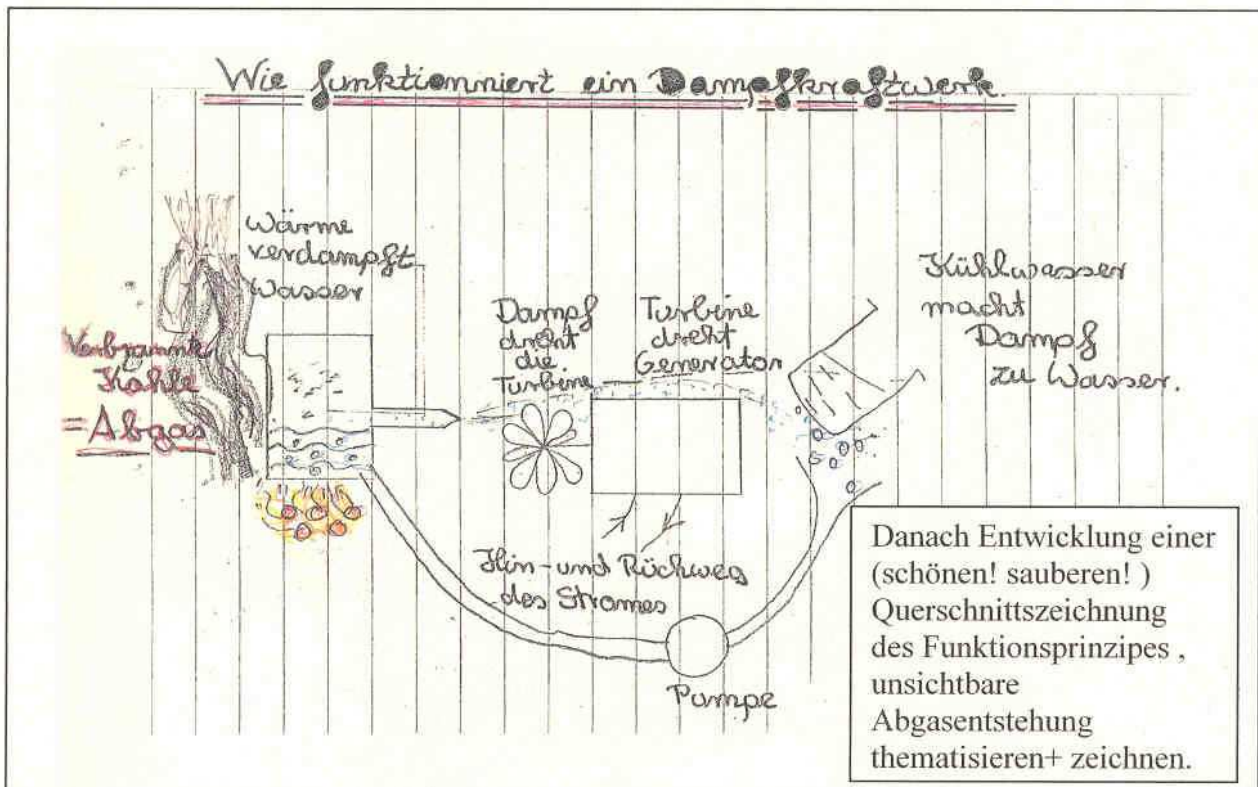 Wie funktionniert ein Dampfkraftwerk.
Wärme
verdampft
Wasser
Verbrannte
Kohle
= Abgas
Dampf
dreht
die
Turbine
Turbine
dreht
Generator
Kühlwasser
macht
Dampf
zu Wasser.
Hin- und Rückweg
des Stromes
Pumpe
Danach Entwicklung einer
(schönen! sauberen! )
Querschnittszeichnung
des Funktionsprinzipes ,
unsichtbare
Abgasentstehung
thematisieren+ zeichnen.